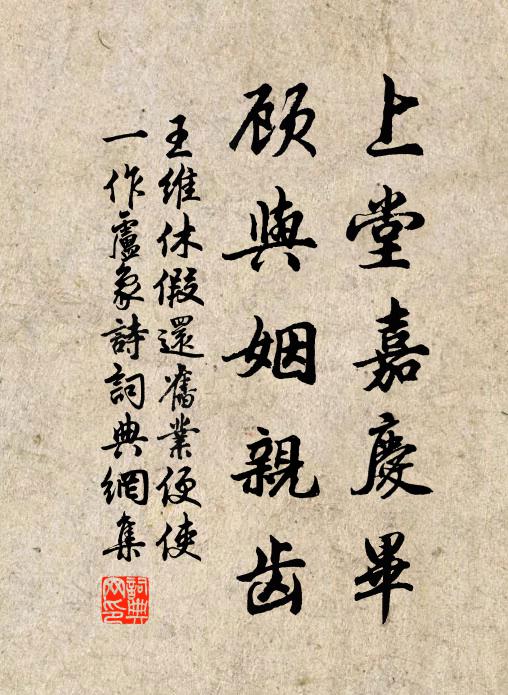 上堂嘉慶畢
顾與姻親齿
王維休假還舊業便使
一作盧象詩詞典網集
詞典网印